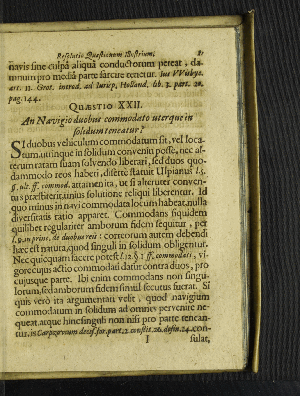 Resolutio Quæstionum Illustrium,
navis sine culpâ aliquâ conductorum pereat, da-
mnum pro mediâ parte sarcire tenetur. Ius VVisbyc.
art. 13. Grot. introd. ad Iurisp. Holland. lib. 3. part. 20.
pag. 144.
QUÆSTIO XXII.
An Navigio duobus commodato uterque in
solidum teneatur?
SI duobus vehiculum commodatum sit, vel loca-
tum, utrinque in solidum conveniri posse, nec al-
terum ratam suam solvendo liberari, sed duos quo-
dammodo reos haberi, diserte statuit Ulpianus l. 5.
§. ult. ff. commod. attamen ita, ut si alter uter conven-
tus præstiterit, unius solutione reliqui liberentur. Id
quo minus in navi commodata locum habeat, nulla
diversitatis ratio apparet. Commodans siquidem
quilibet regulariter amborum fidem sequitur, per
l. 9. in princ. de duobus reis: correorum autem debendi
hæc est natura, quod singuli in solidum obligentur.
Nec quicquam facere potest l. 21. § 1. ff. commodati, vi-
gore cujus actio commodati datur contra duos, pro
cujusque parte. Ibi enim commodans non singu-
lorum, sed amborum fidem simul secutus fuerat. Si
quis verò ita argumentari velit, quod navigium
commodatum in solidum ad omnes pervenire ne-
queat, atque hinc singuli non nisi pro parte tenean-
tur, is Carpzovium decis. for. part. 2. constit. 26. defin. 24. con-
I sulat,